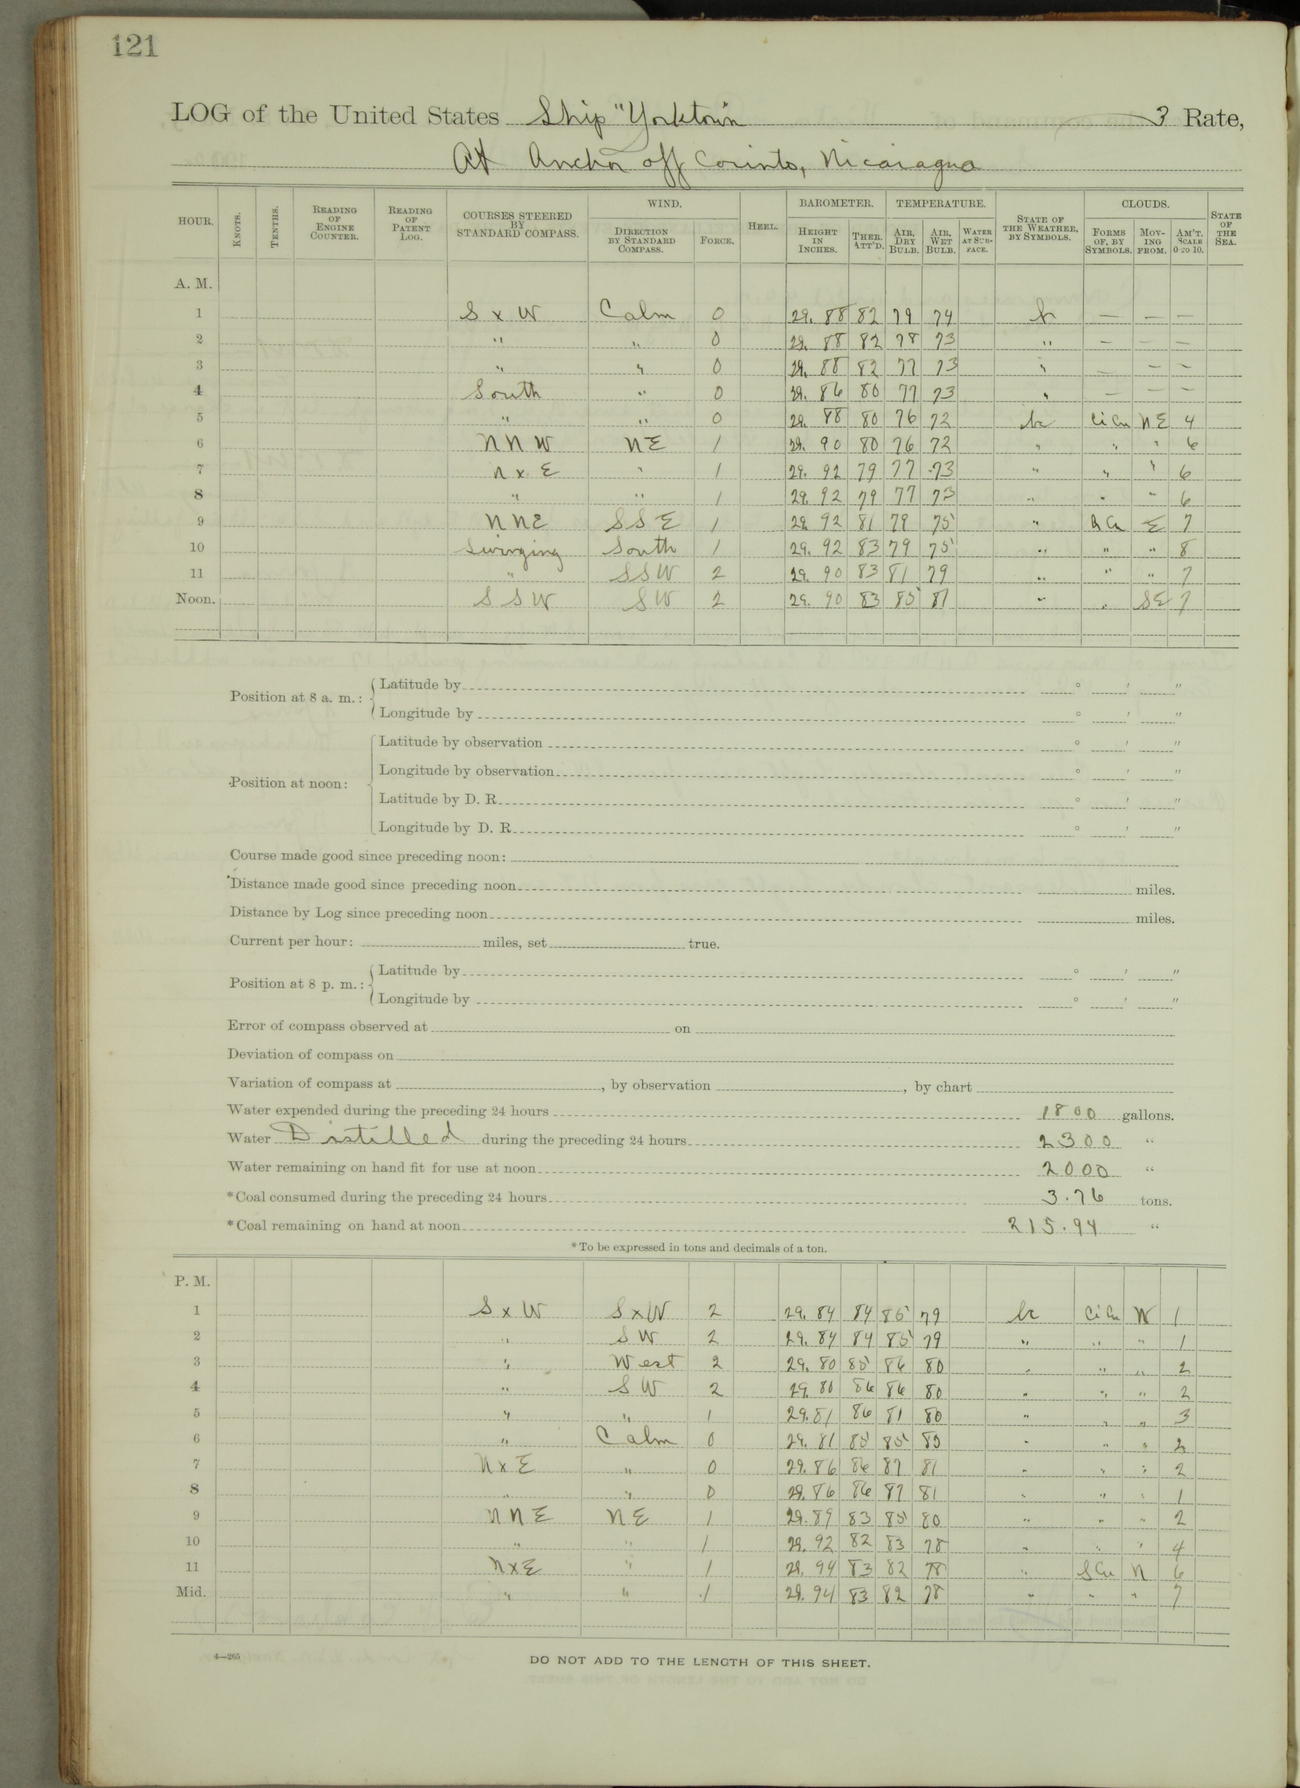 121
LOG of the United States Ship "Yorktown" 3 Rate,
At Anchor off Corinto, Nicaragua
HOUR. KNOTS. TENTHS. READING OF ENGINE COUNTER. READING OF PATENT LOG. COURSES STEERED BY STANDARD COMPASS. WIND. DIRECTION BY STANDARD COMPASS. FORCE. HEEL. BAROMETER. HEIGHT IN INCHES. THER. ATT'D. TEMPERATURE. AIR, DRY BULB. AIR, WET BULB. WATER AT SURFACE. STATE OF THE WEATHER, BY SYMBOLS. CLOUDS. FORMS OF, BY SYMBOLS. MOVING FROM. AM'T. SCALE 0 TO 10. STATE OF THE SEA.
A. M.
1 S x W Calm 0 29. 88 82 79 74 b — — —
2 " " 0 29. 88 82 78 73 " — — —
3 " " 0 29. 88 82 77 73 " — — —
4 South " 0 29. 86 80 77 73 " — — —
5 " " 0 29. 88 80 76 72 bc Ci Cu NE 4
6 N N W NE 1 29. 90 80 76 72 " " " 6
7 N x E " 1 29. 92 79 77 73 " " " 6
8 " " 1 29. 92 79 77 73 " " " 6
9 N N E S S E 1 29. 92 81 79 75 " Cu E 7
10 Swinging South 1 29. 92 83 79 75 " " " 8
11 " S S W 2 29. 90 83 81 79 " " " 7
Noon. S S W S W 2 29. 90 83 85 81 " " SE 7
Position at 8 a. m.: Latitude by ° ' "
Longitude by ° ' "
Position at noon: Latitude by observation ° ' "
Longitude by observation ° ' "
Latitude by D. R. ° ' "
Longitude by D. R. ° ' "
Course made good since preceding noon:
Distance made good since preceding noon miles.
Distance by Log since preceding noon miles.
Current per hour: miles, set true.
Position at 8 p. m.: Latitude by ° ' "
Longitude by ° ' "
Error of compass observed at on
Deviation of compass on
Variation of compass at , by observation , by chart
Water expended during the preceding 24 hours 1800 gallons.
Water Distilled during the preceding 24 hours 2300 "
Water remaining on hand fit for use at noon 2000 "
*Coal consumed during the preceding 24 hours 3.76 tons.
*Coal remaining on hand at noon 215.94 "
*To be expressed in tons and decimals of a ton.
P. M.
1 S x W S x W 2 29. 84 84 85 79 bc Ci Cu W 1
2 " S W 2 29. 84 84 85 79 " " " 1
3 " West 2 29. 80 85 86 80 " " " 2
4 " S W 2 29. 80 86 86 80 " " " 2
5 " " 1 29. 81 86 81 80 " " " 3
6 " Calm 0 29. 81 85 85 80 " " " 2
7 N x E " 0 29. 86 86 87 81 " " " 2
8 " " 0 29. 86 86 87 81 " " " 1
9 N N E N E 1 29. 89 83 85 80 " " " 2
10 " " 1 29. 92 82 83 78 " " " 4
11 N x E " 1 29. 94 83 82 78 " S Cu N 6
Mid. " " 1 29. 94 83 82 78 " " " 7
4—265
DO NOT ADD TO THE LENGTH OF THIS SHEET.